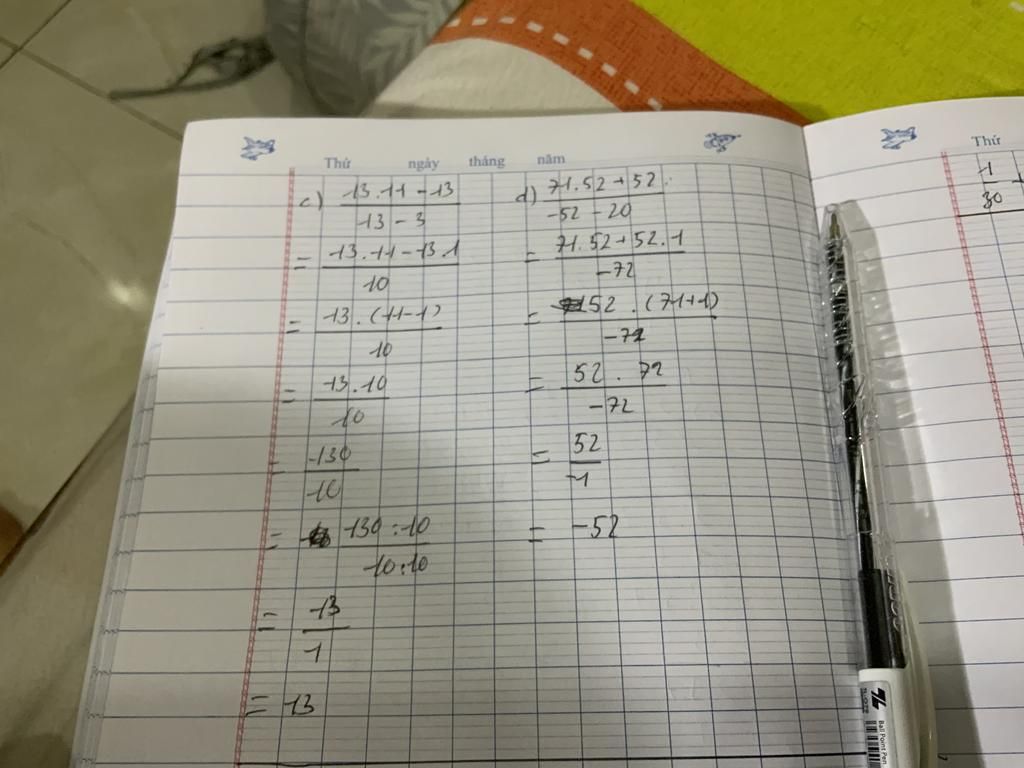 Thứ ngày tháng năm
c) 13.11-13
13-3
= 13.11-13.1
10
= 13.(11-1)
10
= 13.10
10
= 130
10
= 130:10
10:10
= 13
1
= 13
d) 71.52+52
-52-20
= 71.52+52.1
-72
= 52.(71+1)
-72
= 52.72
-72
= 52
-1
= -52
Thứ
1 +
30
TL
Ball Point Pen